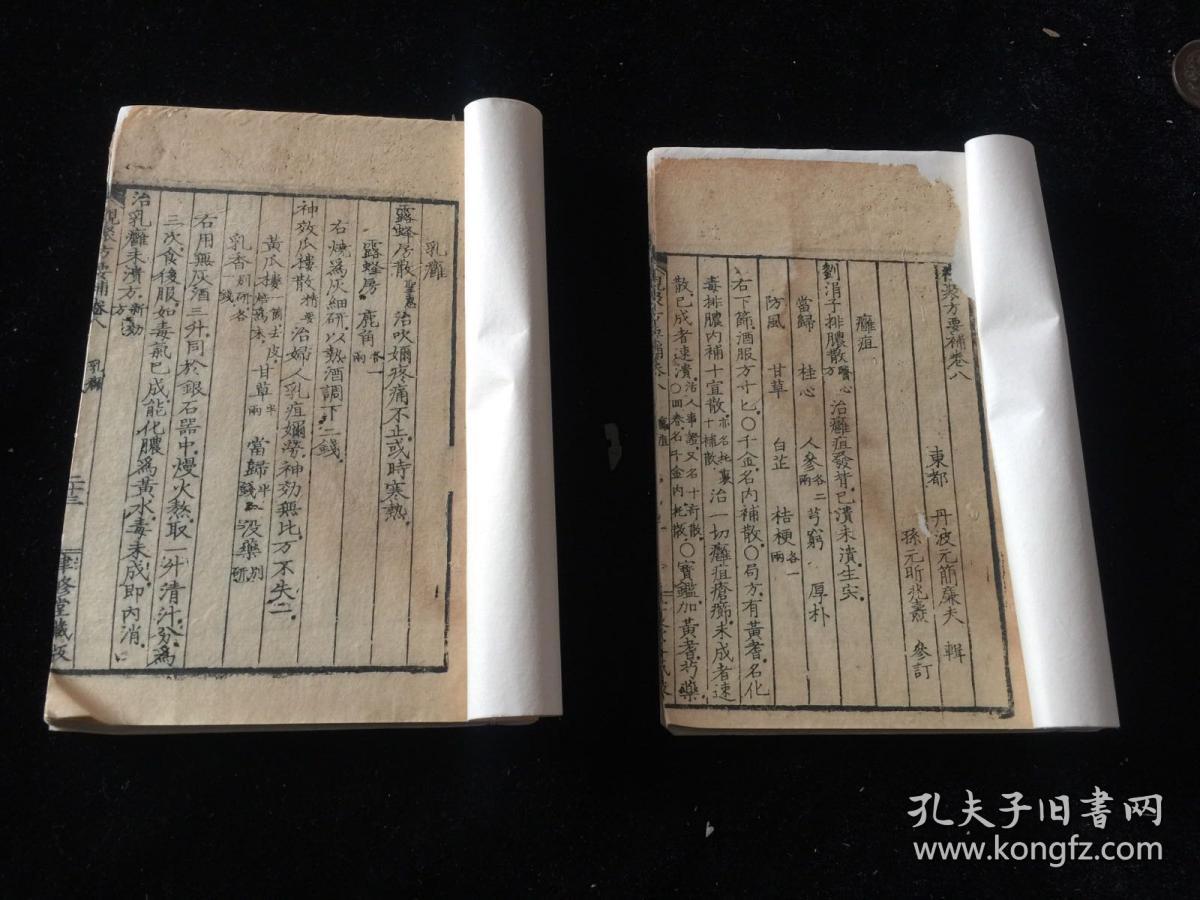 乳癰
露蜂房散 聖惠 治吹嬭疼痛不止或時寒熱
露蜂房 鹿角 各一兩
右燒爲灰細研以熱酒調下二錢
神效瓜樓散 精要 治婦人乳疽嬭勞神効無比万不失二
黃瓜樓 一箇去皮焙爲末 甘草 半兩 當歸 半錢 沒藥 別研
乳香 別研各錢
右用無灰酒三升同於銀石器中熳火熬取一升清汁分爲
三次食後服如毒氣已成能化膿爲黃水毒未成即內消
治乳癰未潰方 新効方
觀聚方要補卷八 乳癰 二十三 聿修堂藏板
聚方要補卷八
東都 丹波元簡廉夫 輯
孫元昕兆燾 參訂
癰疽
劉涓子排膿散 醫心方 治癰疽發背已潰未潰生
當歸 桂心 人參 各二兩 芎藭 厚朴
防風 甘草 白芷 桔梗 各一兩
右下篩酒服方寸匕○千金名內補散○局方有黃耆名化
毒排膿內補十宣散 亦名托裏十補散 治一切癰疽瘡癤未成者速
散已成者速潰 活人事證又名十奇散 ○四卷名千金內托散○寶鑑加黃耆芍藥
觀聚方要補卷八
孔夫子旧书网
www.kongfz.com